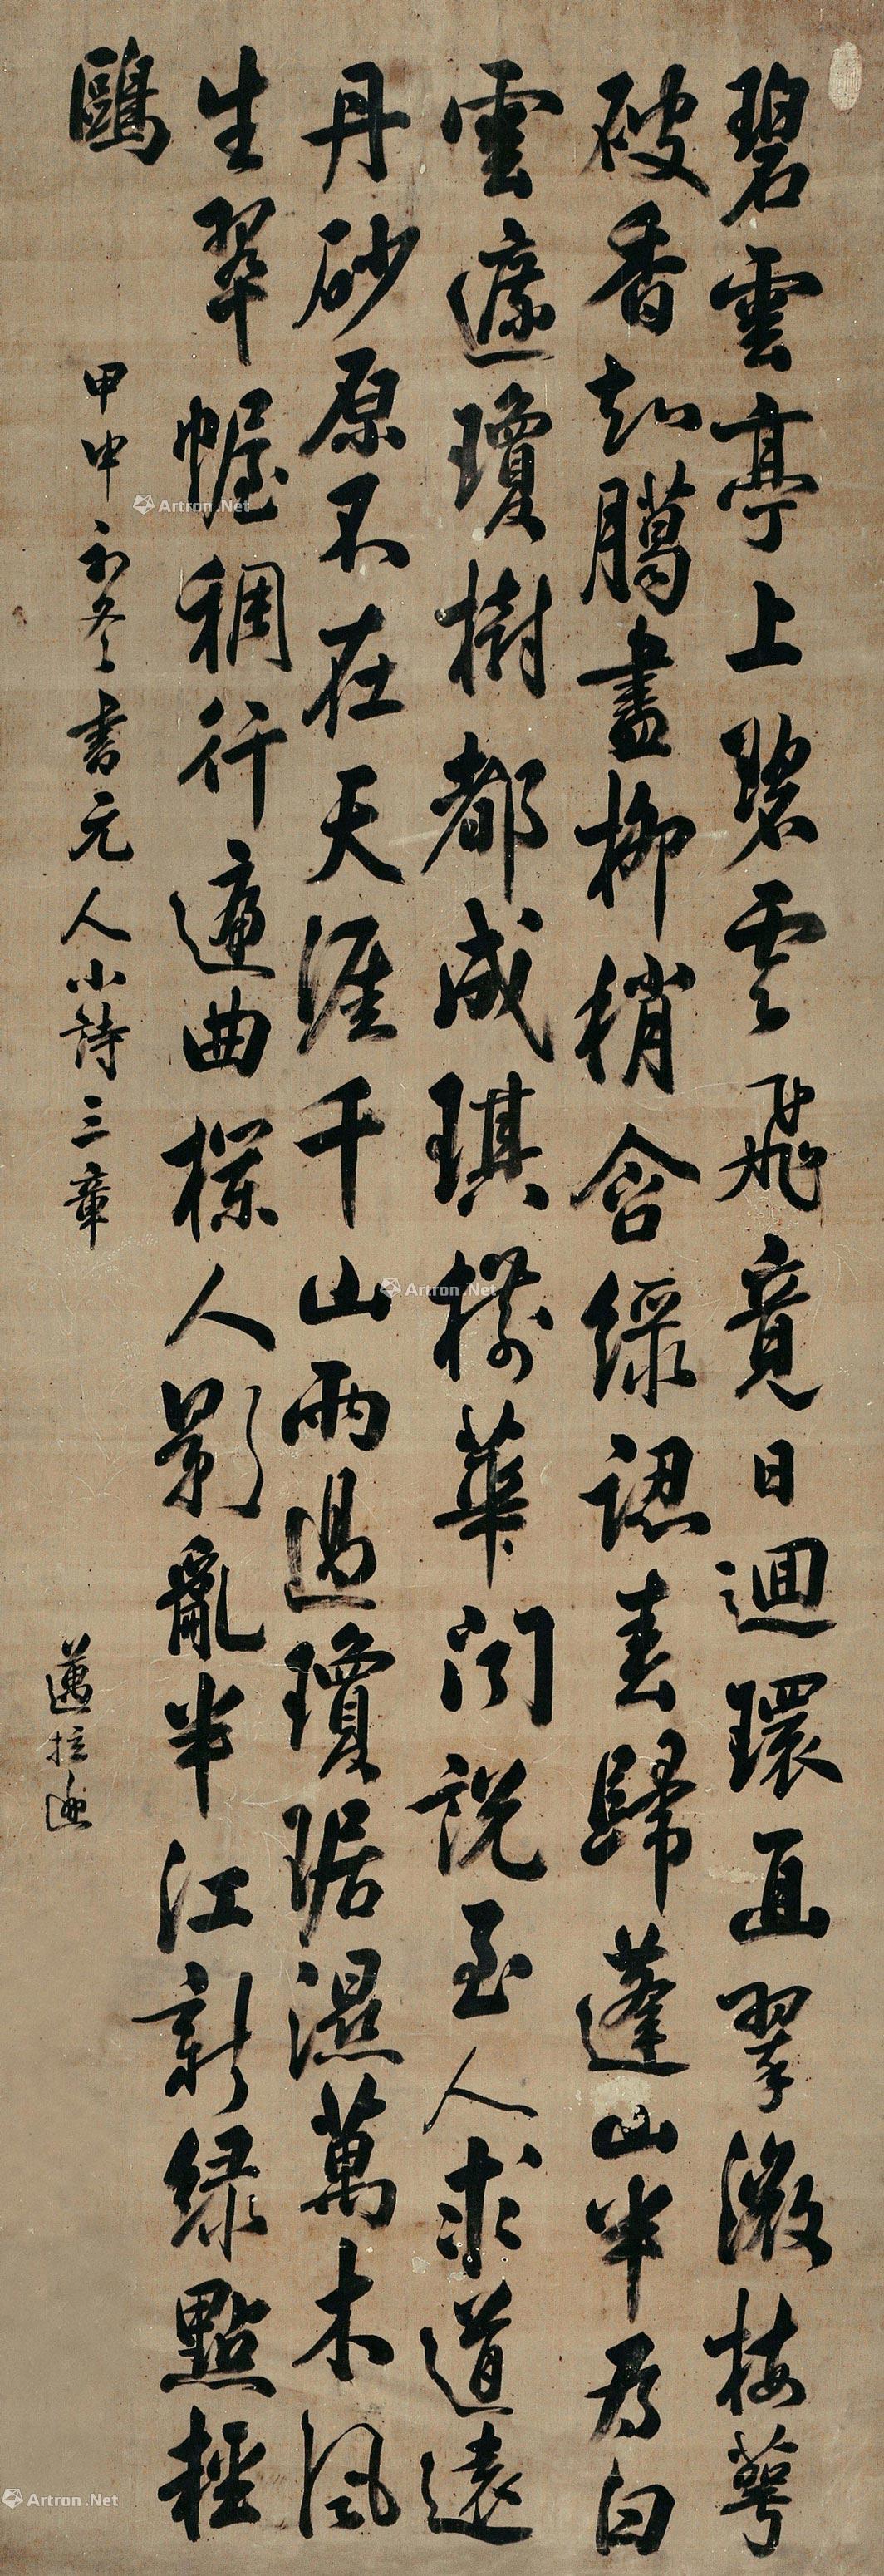 碧雲亭上碧雲飛竟日迴環直翠微梅萼
破香知臘盡柳梢含綠認春歸蓬山半為白
雲遮瓊樹都成琪樹華聞說至人求道遠
丹砂原不在天涯千山雨過瓊琚濕萬木風
生翠幄稠行遍曲欄人影亂半江新綠點輕
鷗
甲申初冬書元人小詩三章
邁拉遜
Artron.Net
Artron.Net
Artron.Net